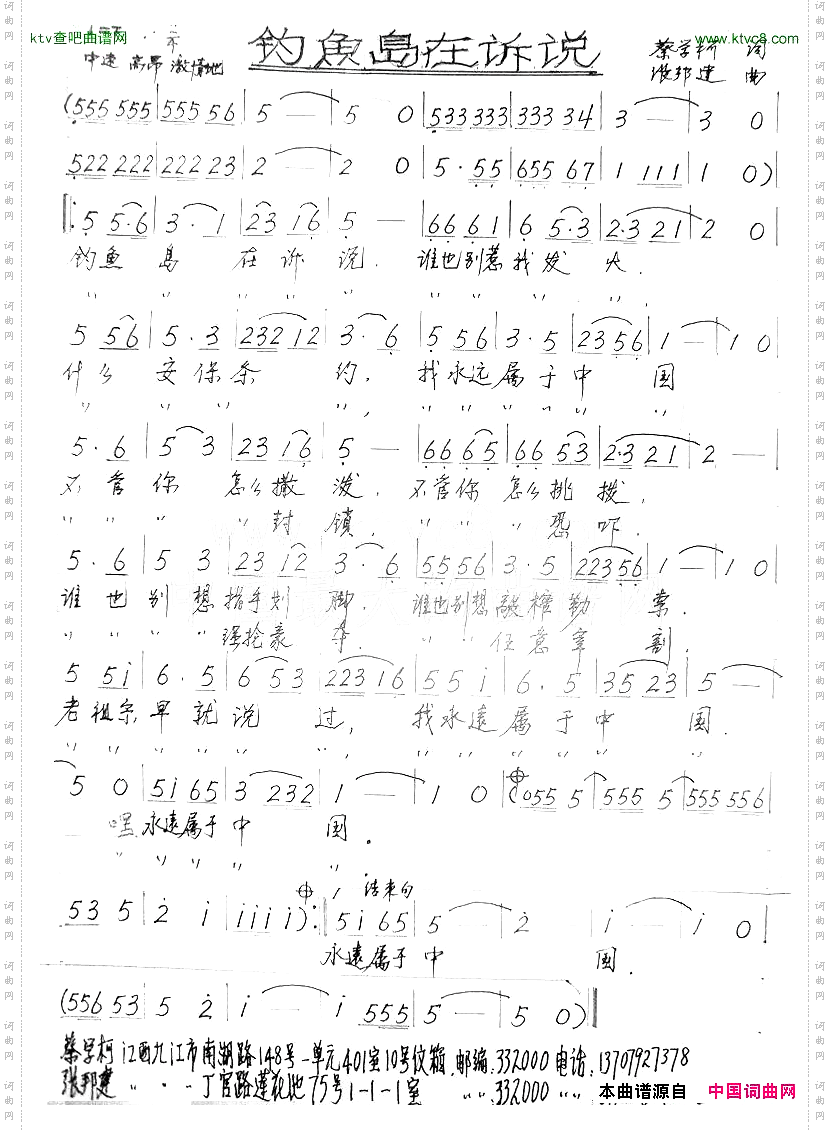 ktv查吧曲谱网
www.ktvc8.com
钓魚島在诉说
中速 高昂 激情地
蔡学柯 词
张邦建 曲
(555 555 | 555 56 | 5 — | 5 0 | 533 333 | 333 34 | 3 — | 3 0
522 222 | 222 23 | 2 — | 2 0 | 5·55 | 655 67 | 1 111 | 1 0)
5 5·6 | 3·1 | 23 16 | 5 — | 66 61 | 6 5·3 | 2·3 21 | 2 0
钓魚 島 在诉 说. 谁也别惹我发 火.
〃 〃 〃 〃 〃 〃 〃
5 56 | 5·3 | 2321 12 | 3·6 | 5 56 | 3·5 | 23 56 | 1 — | 1 0
什么 安保条 约, 我永远属于中 国
5·6 | 5 3 | 23 16 | 5 — | 66 65 | 66 53 | 2·3 21 | 2 —
不管你 怎么撒 泼, 不管你 怎么挑 拨,
〃 〃 〃 〃 封 镇, 〃 〃 〃 〃 恐 吓.
5·6 | 5 3 | 23 12 | 3·6 | 55 56 | 3·5 | 22356 | 1 — | 1 0
谁 也 别 想指手划 脚. 谁也别想敲榨勒 索.
〃 〃 〃 〃 强抢豪 夺. 〃 〃 任意宰 割.
5 5i | 6.5 | 6 53 | 223 16 | 5 5 i | 6.5 | 35 23 | 5 —
老祖宗早就说 过, 我永遠属于中 国.
5 0 | 5i 65 | 3 232 | i — | i 0 | (055 5 | 555 5 | 555 556
嘿 永遠属于中 国.
53 5 | 2 i | ii ii) :| 5i 65 | 5 — | 2 | i — | i 0 |
结束句
永遠属于中 国.
(556 53 | 5 2 | i — | i 555 | 5 — | 5 0) ||
蔡学柯 江西九江市南湖路148号一单元401室10号仪箱.邮编:332000电话:13707927378
张邦建 〃 〃 · 丁官路莲花池75号1-1-1室 〃〃.332000 〃〃
本曲谱源自 中国词曲网
词曲网